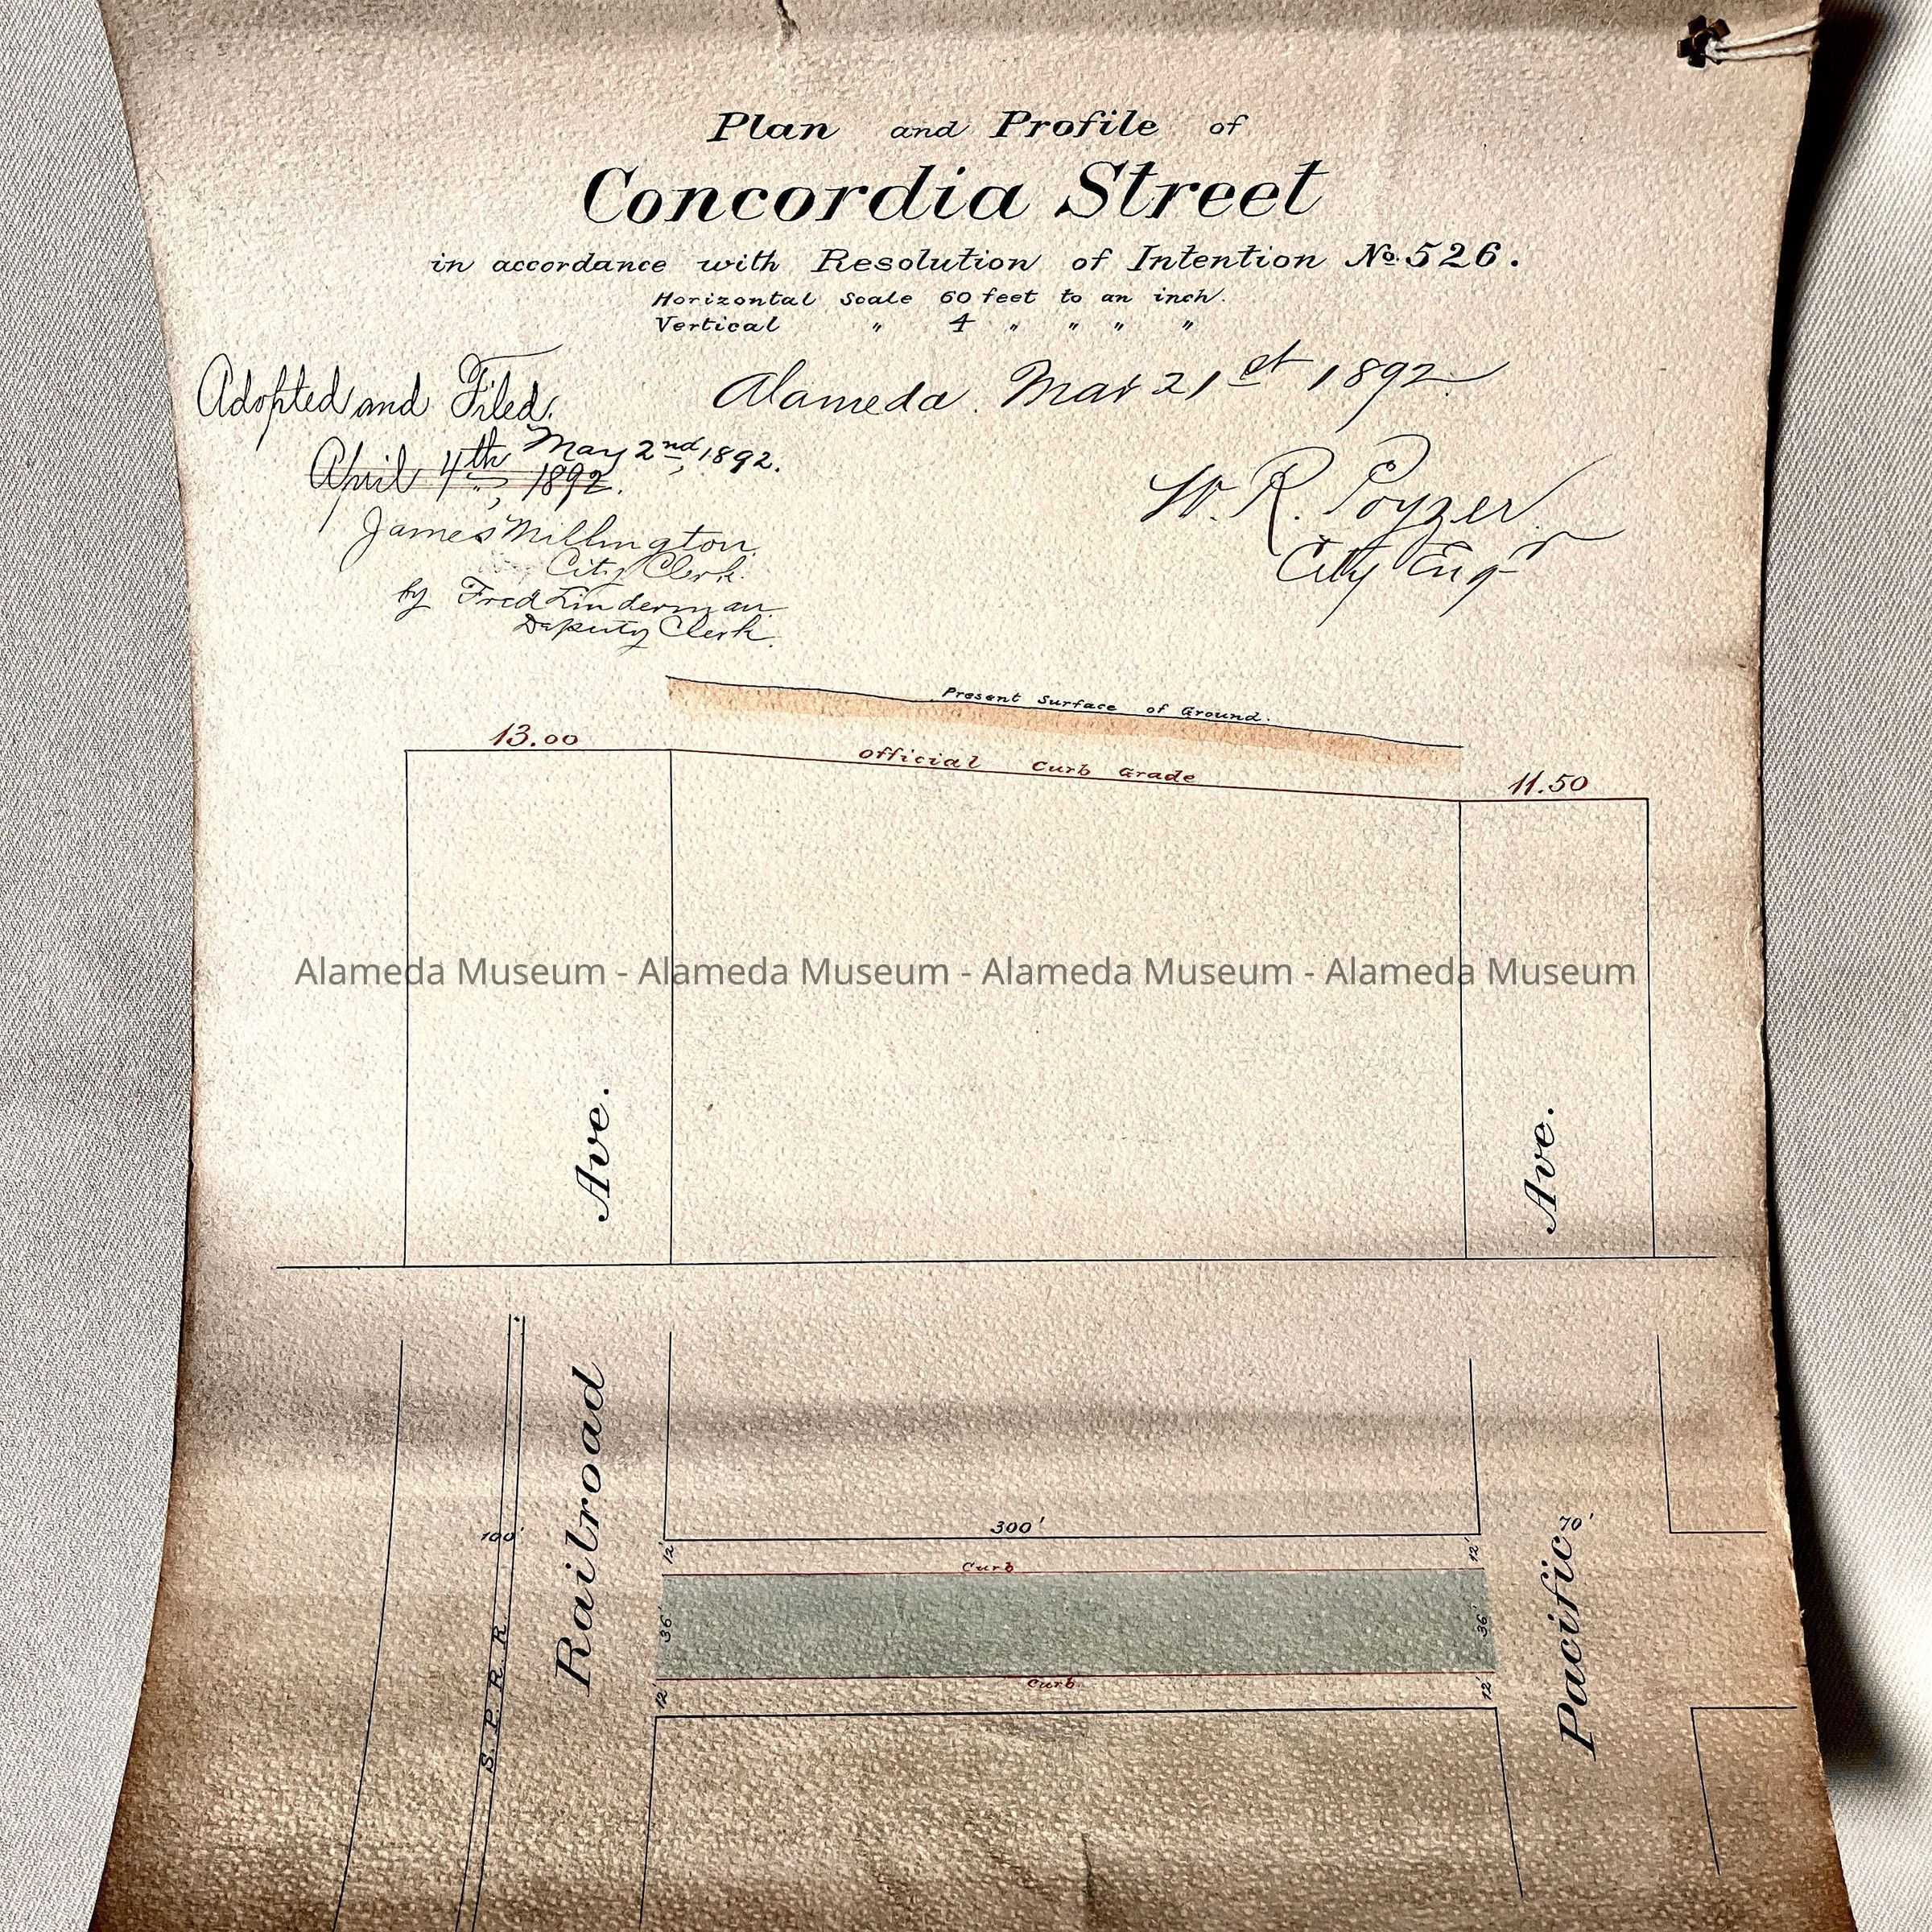 Plan and Profile of
Concordia Street
in accordance with Resolution of Intention No. 526.
Horizontal Scale 60 feet to an inch.
Vertical " 4 " " " "
Adopted and Filed.
May 2nd, 1892.
April 4th, 1892.
James Millington
City Clerk.
by Fred Linderman
Deputy Clerk.
Alameda. Mar 21st 1892.
W. R. Poyzer.
City Engr
Present Surface of Ground.
13.00
Official Curb Grade
11.50
Alameda Museum - Alameda Museum - Alameda Museum - Alameda Museum
Railroad Ave.
Pacific Ave.
100'
300'
70'
12'
12'
Curb
36'
36'
Curb
12'
12'
S. P. R. R.